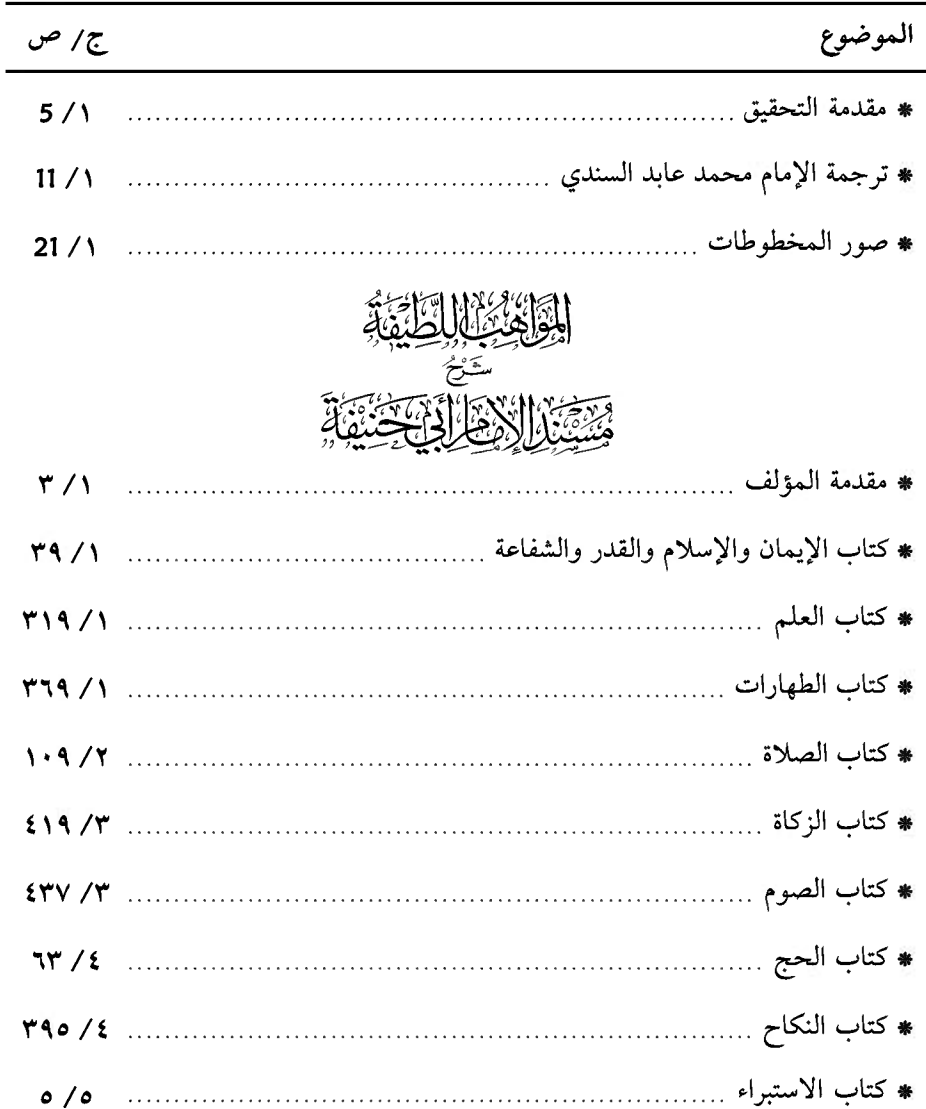 الموضوع ج/ ص
* مقدمة التحقيق ١/ 5
* ترجمة الإمام محمد عابد السندي ١/ 11
* صور المخطوطات ١/ 21
المَوَاهِبُ اللَّطِيفَةُ
شَرْحُ
مُسْنَدِ الإِمَامِ أَبِي حَنِيْفَةَ
* مقدمة المؤلف ١/ ٣
* كتاب الإيمان والإسلام والقدر والشفاعة ١/ ٣٩
* كتاب العلم ١/ ٣١٩
* كتاب الطهارات ١/ ٣٦٩
* كتاب الصلاة ٢/ ١٠٩
* كتاب الزكاة ٣/ ٤١٩
* كتاب الصوم ٣/ ٤٣٧
* كتاب الحج ٤/ ٦٣
* كتاب النكاح ٤/ ٣٩٥
* كتاب الاستبراء ٥/ ٥